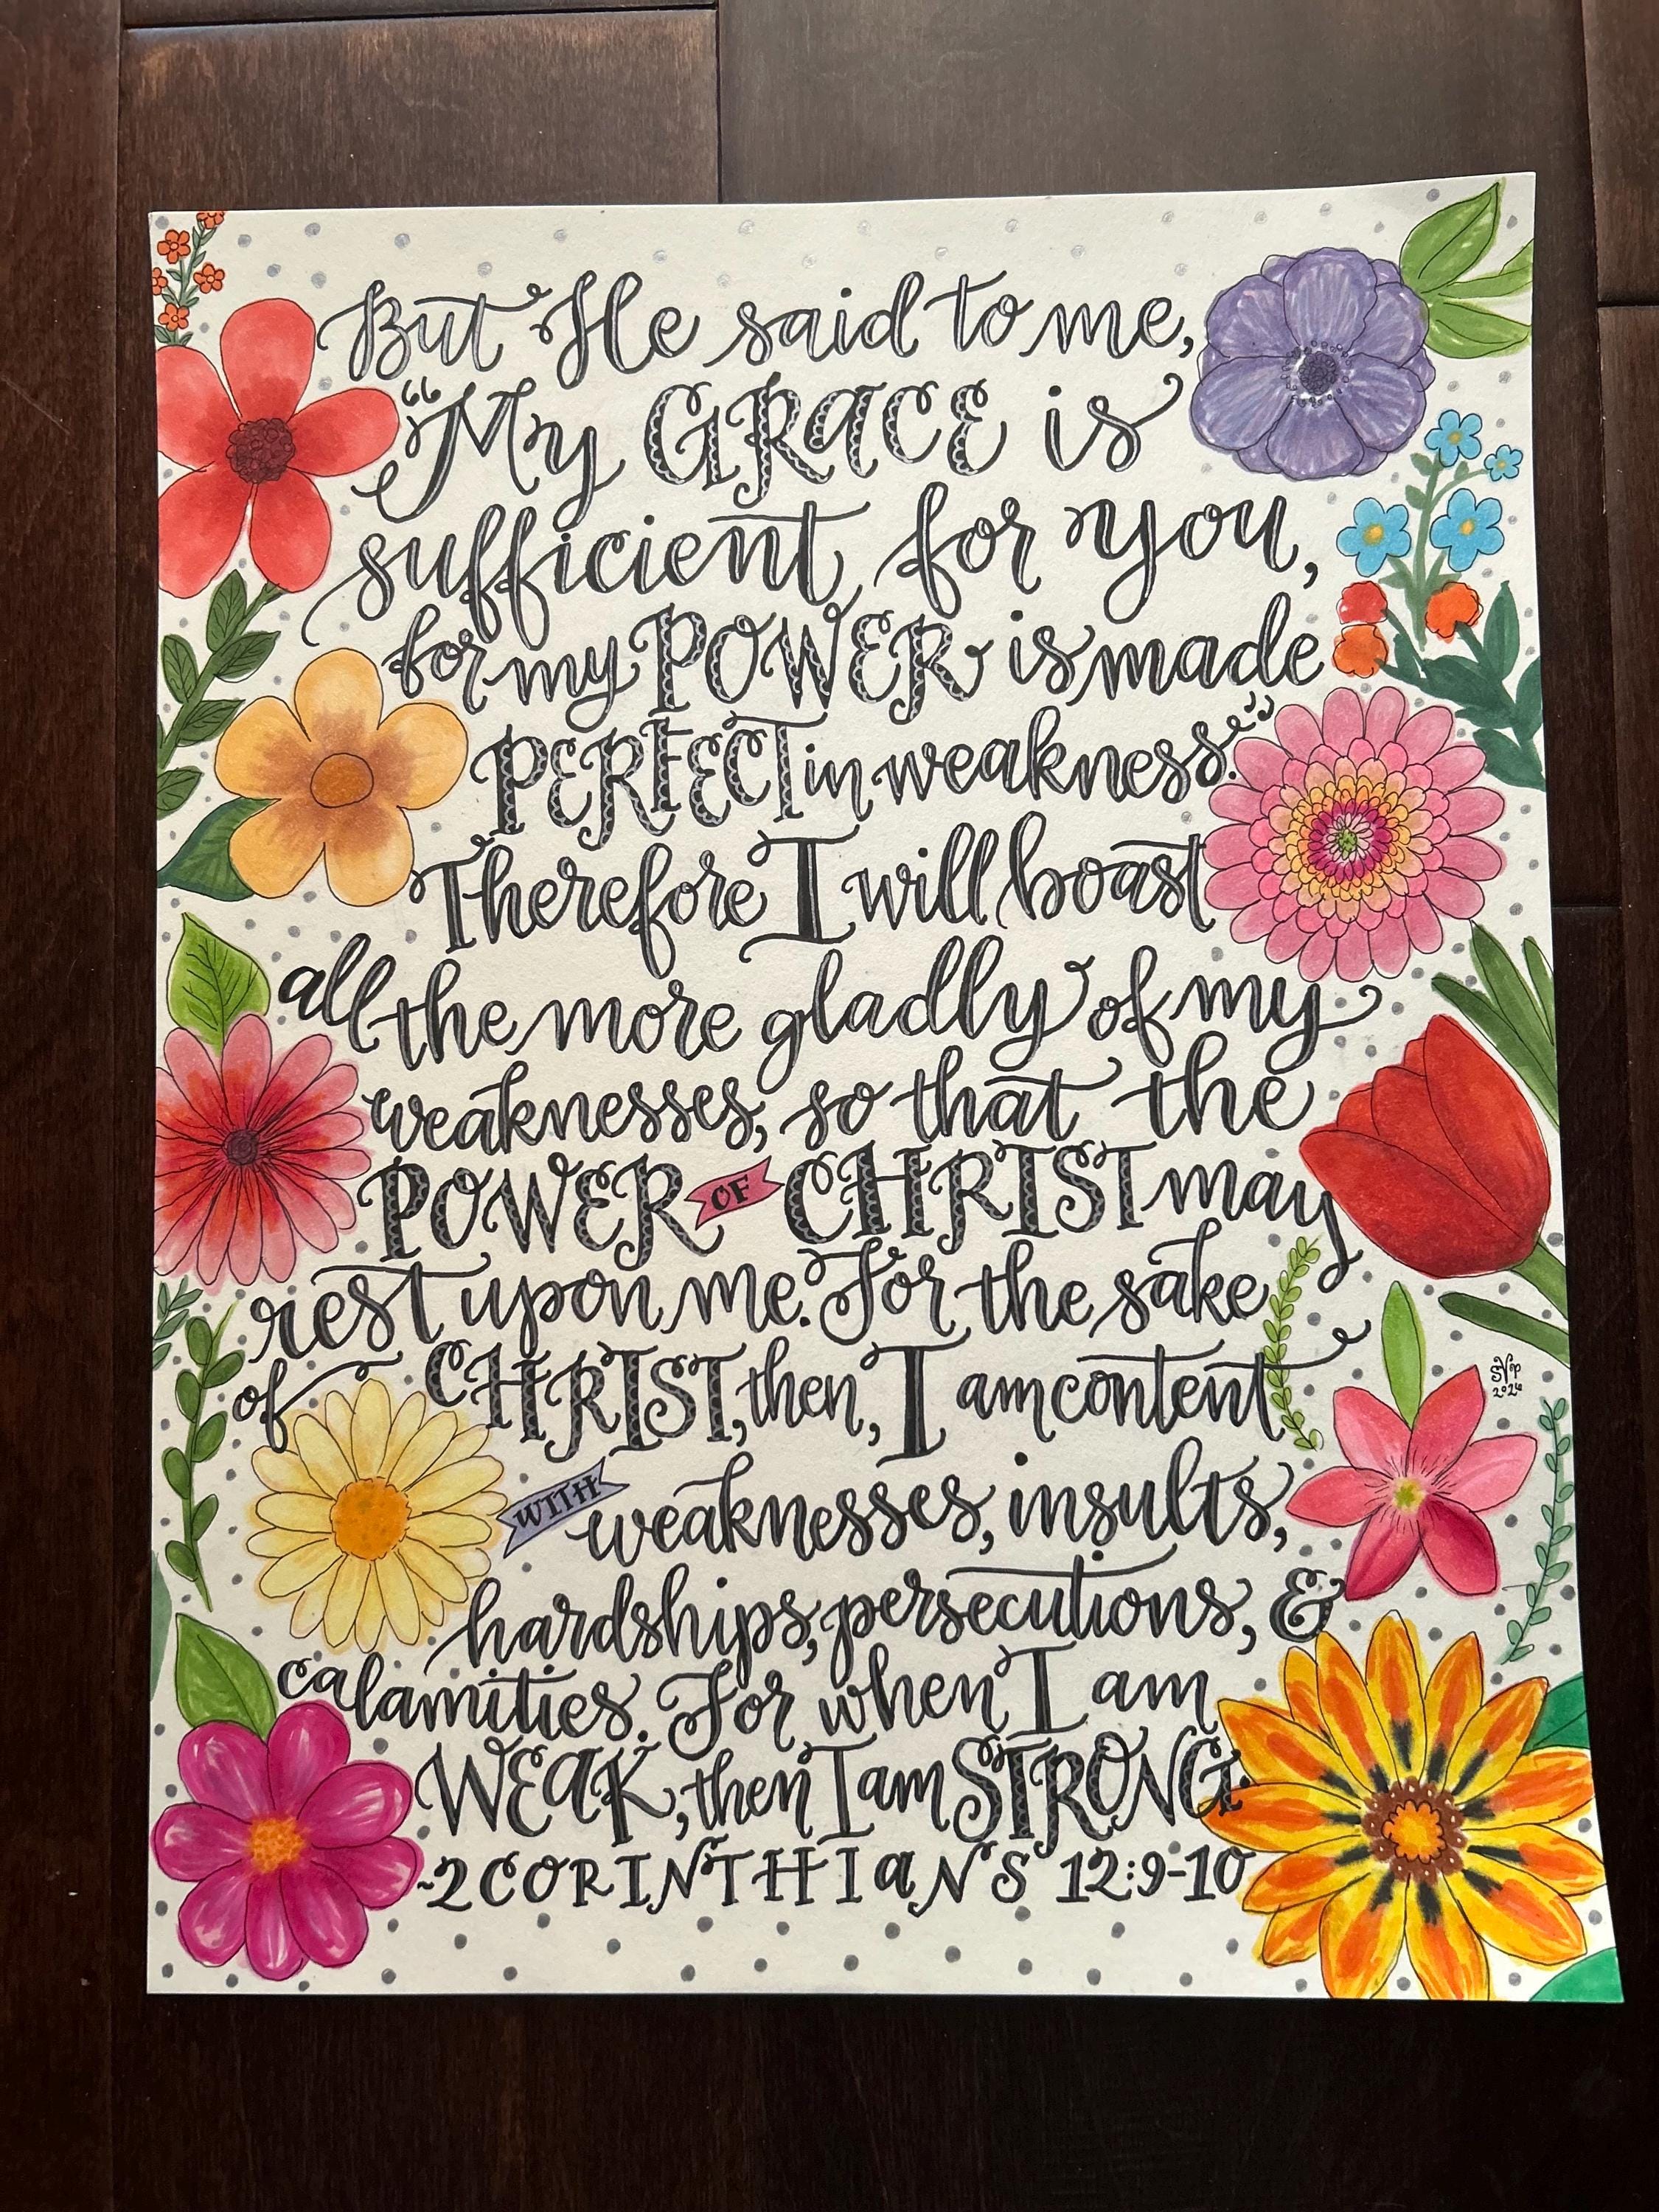 But He said to me,
"My GRACE is
sufficient for you,
for my POWER is made
PERFECT in weakness."
Therefore I will boast
all the more gladly of my
weaknesses, so that the
POWER OF CHRIST may
rest upon me. For the sake
of CHRIST, then, I am content
WITH weaknesses, insults,
hardships, persecutions, &
calamities. For when I am
WEAK, then I am STRONG.
~2 CORINTHIANS 12:9-10
SVP
2026